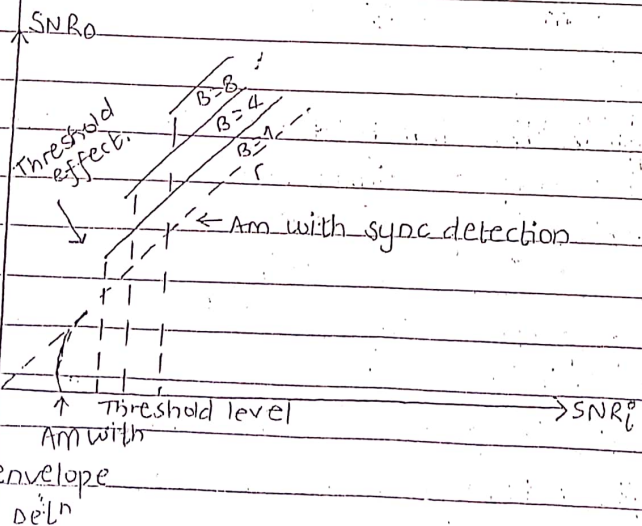 SNRo
B=8
B=4
B=1
Threshold
effect.
← Am with sync detection
Threshold level
SNRi
↑
Am with
envelope
Detn